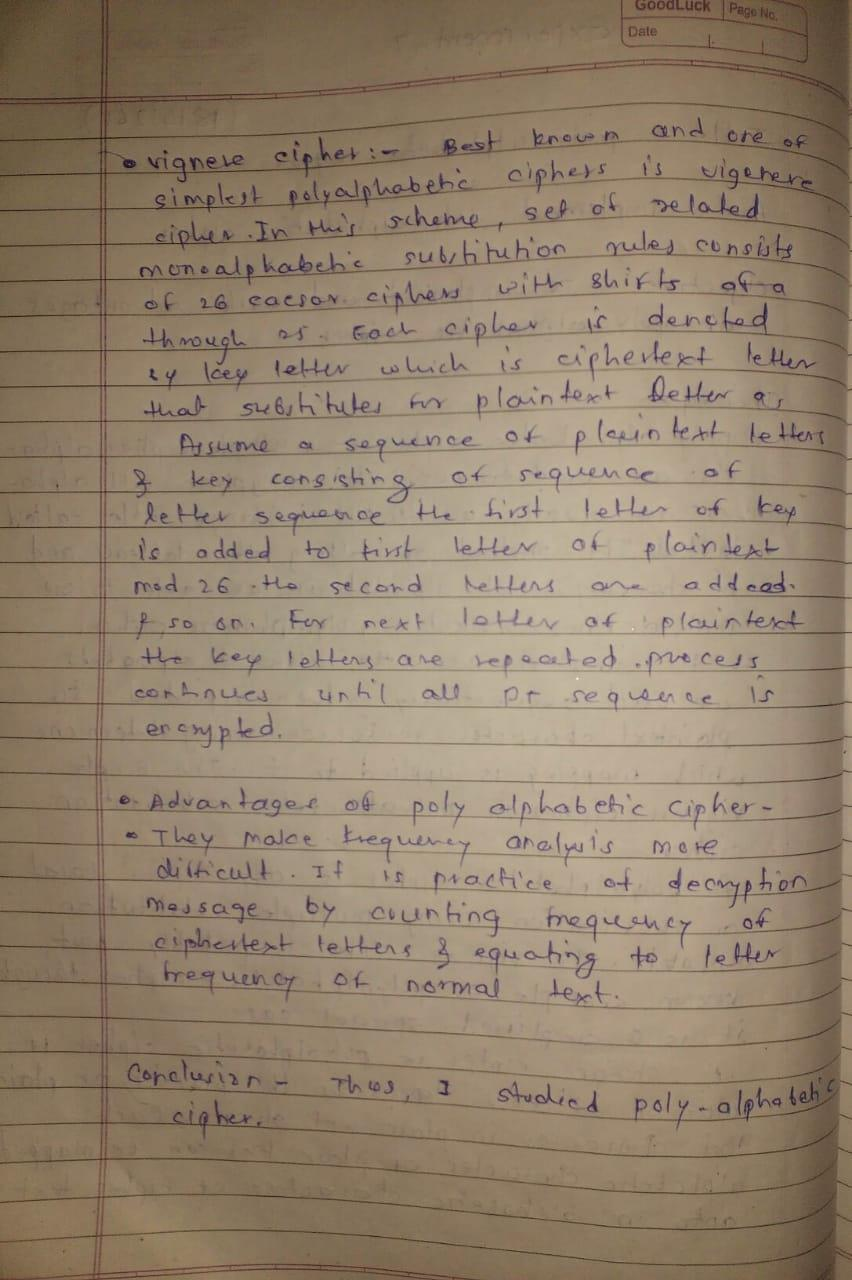 GoodLuck Page No.
Date
• vignere cipher :- Best known and one of
simplest polyalphabetic ciphers is vigenere
cipher. In this scheme, set of related
monoalphabetic substitution rules consists
of 26 caesar ciphers with shifts of a
through 25. Each cipher is denoted
by key letter which is ciphertext letter
that substitutes for plaintext letter as
Assume a sequence of plaintext letters
& key consisting of sequence of
letter sequence the first letter of key
is added to first letter of plaintext
mod 26 the second letters are addead.
& so on. For next letter of plaintext
the key letters are repeated. process
continues until all pt sequence is
encrypted.
• Advantages of poly alphabetic cipher-
• They make frequency analysis more
difficult. It is practice of decryption
message by counting frequency of
ciphertext letters & equating to letter
frequency of normal text.
Conclusion - Thus, I studied poly-alphabetic
cipher.